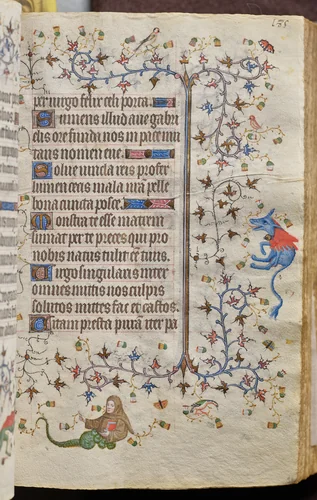 per uirgo felix celi porta.
Sumens illud aue gabri
elis ore funda nos in pace mu
tans nomen eue.
Solue uincla reis profer
lumen cecis mala nr̄a pelle
bona cuncta posce.
Monstra te esse matrem
sumat per te preces qui pro
nobis natus tulit eē tuus.
Uirgo singularis inter
omnes mittis nos culpis
solutos mittes fac et castos.
Uitam presta purā iter pa